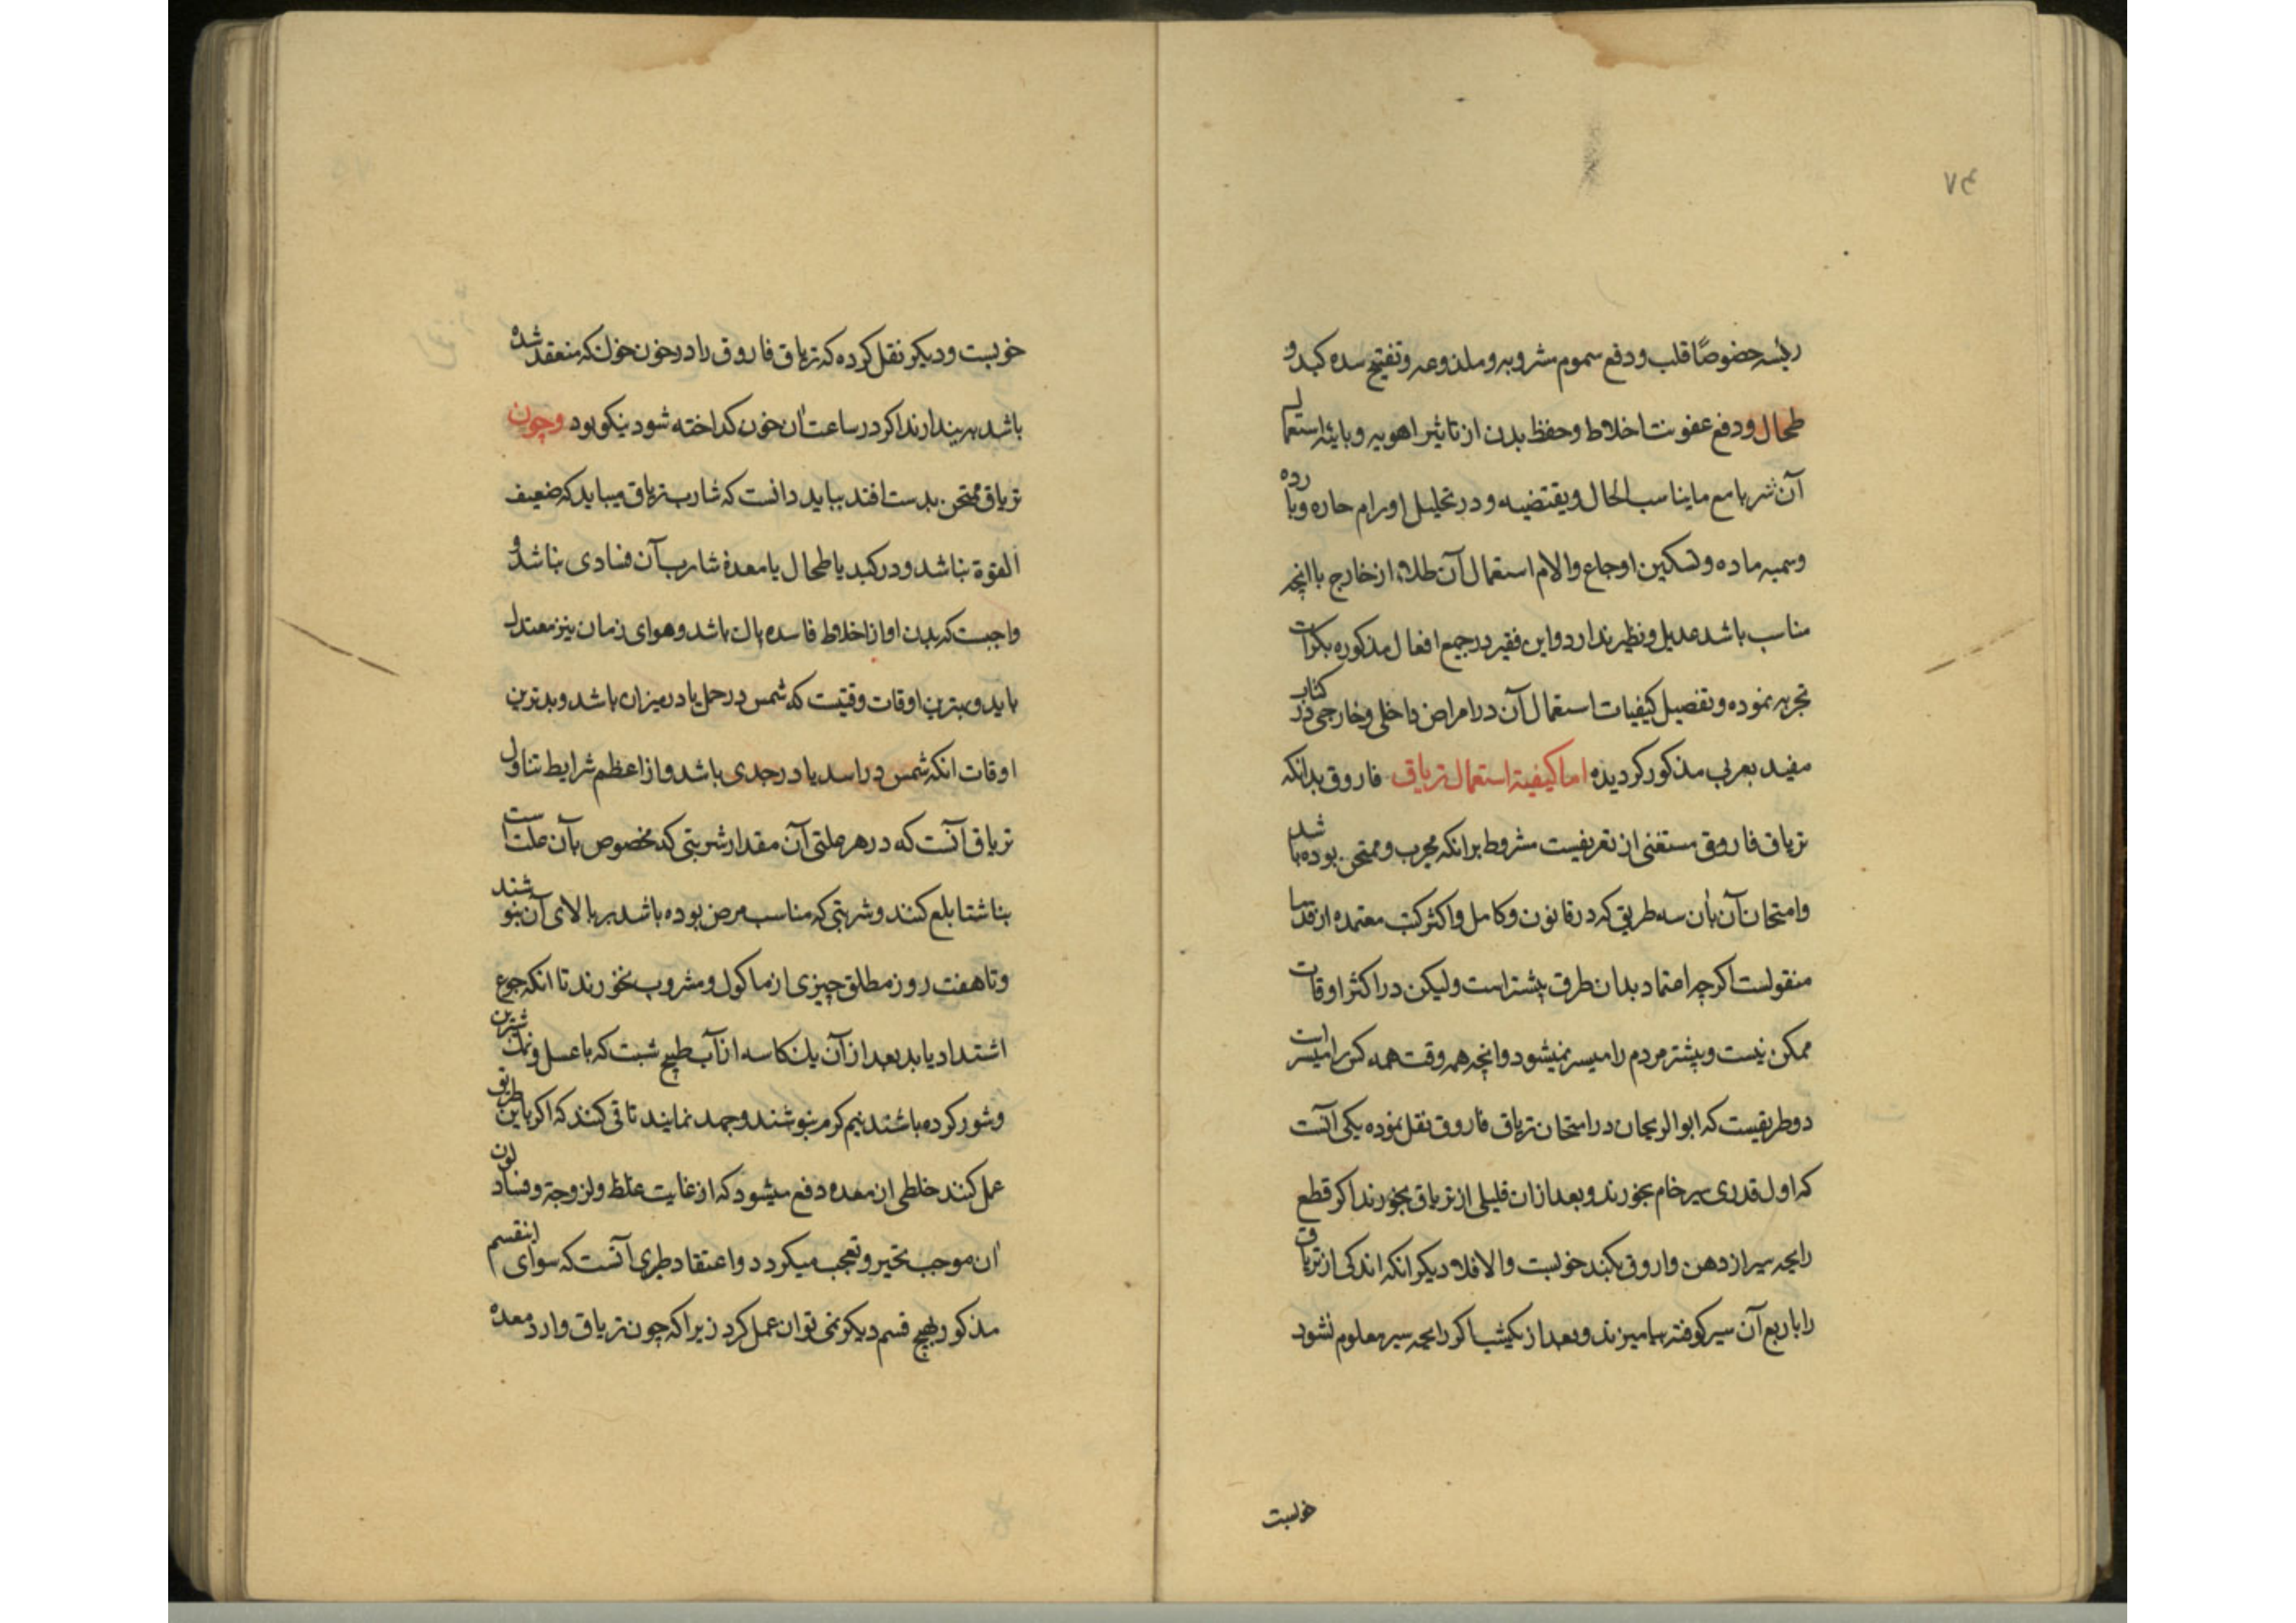 ۶۷
رئیسه خصوصًا قلب و دفع سموم مشروبه و ملذوعه و تفتیح سده کبد و
طحال و دفع عفونت اخلاط و حفظ بدن از تاثیر اهویه وبایئه استعمال
آن شربا مع ما یناسب الحال و یقتضیه و در تحلیل اورام حاره و بارده
وسمیه ماده و تسکین اوجاع والالام استعمال آن طلاء از خارج با انچه
مناسب باشد عدیل و نظیر ندارد و این فقیر در جمیع افعال مذکوره بکرات
تجربه نموده و تفصیل کیفیات استعمال آن در امراض داخلی و خارجی در کتاب
مفید بعربی مذکور کردیده اما کیفیة استعمال تریاق فاروق بدانکه
تریاق فاروق مستغنی از تعریفست مشروط برانکه مجرب و ممتحن بوده باشد
وامتحان آن بان سه طریق که در قانون و کامل و اکثر کتب معتمده از قدما
منقولست اکرچه اعتماد بدان طرق بیشتر است ولیکن در اکثر اوقات
ممکن نیست و بیشتر مردم را میسر نمیشود وانچه همه وقت همه کس را میسر است
دو طریقیست که ابوالریحان در امتحان تریاق فاروق نقل نموده یکی آنست
که اول قدری سیر خام بخورند و بعد ازان قلیلی از تریاق بخورند اکر قطع
رایحه سیر از دهن واروق بکند خوبست والا فلا دیکر انکه اندکی از تریاق
را با ربع آن سیر کوفته بیامیزند و بعد از یکشب اکر رایحه سیر معلوم نشود
خوبست
خوبست و دیکر نقل کرده که تریاق فاروق را در خون خرکوش که منعقد شده
باشد بیندازند اکر در ساعت ان خون کداخته شود نیکو بود وچون
تریاق ممتحن بدست افتد بباید دانست که شارب تریاق میباید که ضعیف
القوة نباشد و در کبد یا طحال یا معدهٔ شارب آن فسادی نباشد و
واجبست که بدن او از اخلاط فاسده پاک باشد و هوای زمان نیز معتدل
باید و بهترین اوقات وقتیست که شمس در حمل یا در میزان باشد و بدترین
اوقات انکه شمس در اسد یا در جدی باشد و از اعظم شرایط تناول
تریاق آنست که در هر علتی آن مقدار شربتی که مخصوص بآن علتست
بناشتا بلع کنند و شربتی که مناسب مرض بوده باشد بر بالای آن بنوشند
و تا هفت روز مطلق چیزی از ماکول و مشروب نخورند تا انکه جوع
اشتداد یابد بعد از آن یک کاسه از آب طبیخ شبت که با عسل و نمک شیرین
و شور کرده باشند نیم کرم بنوشند و جهد نمایند تا قی کنند که اکر باین طریق
عمل کنند خلطی از معده دفع میشود که از غایت غلظ و لزوجة و فساد لون
ان موجب تحیر و تعجب میکردد و اعتقاد طبری آنست که سوای اینقسم
مذکور بهیچ قسم دیکر نمی توان عمل کرد زیرا که چون تریاق وارد معده